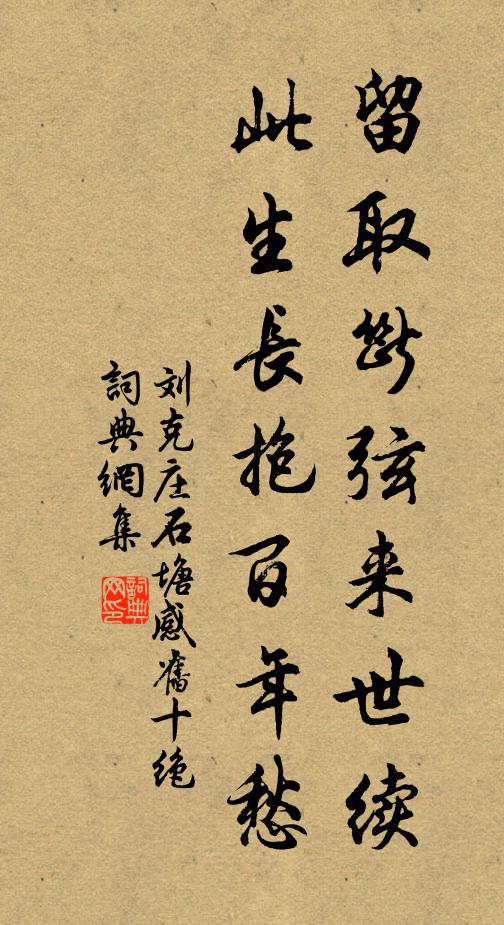 留取断弦来世续
此生長抱百年愁
刘克庄石塘感舊十绝
詞典網集
詞典网印